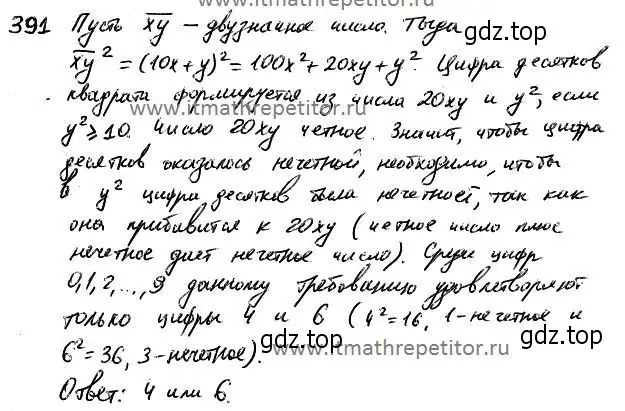 www.itmathrepetitor.ru
391 Пусть xy – двузначное число. Тогда
gdz.top
xy² = (10x+y)² = 100x² + 20xy + y². Цифра десятков
квадрата формируется из числа 20xy и y², если
www.itmathrepetitor.ru
y² ≥ 10. Число 20xy четное. Значит, чтобы цифра
десятков оказалось нечетной, необходимо, чтобы
в y² цифра десятков была нечетной, так как
она прибавится к 20xy (четное число плюс
нечетное дает нечетное число). Среди цифр
0,1,2,...,9 данному требованию удовлетворяют
только цифры 4 и 6 (4²=16, 1-нечетное и
gdz.top gdz.top
6²=36, 3-нечетное).
www.itmathrepetitor.ru
Ответ: 4 или 6.